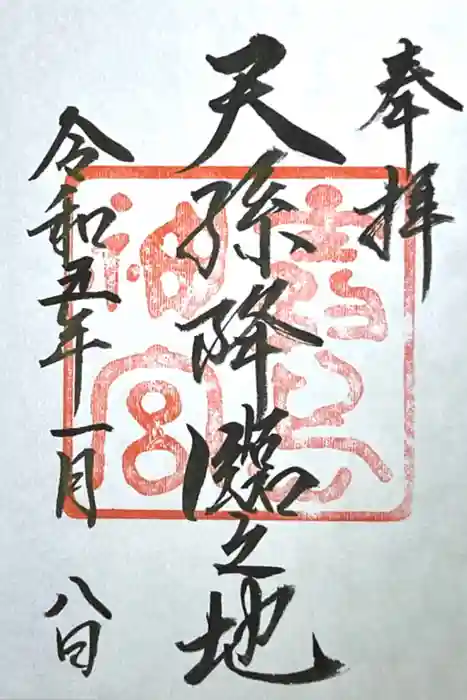 奉拝
天孫降臨之地
令和五年一月八日
神宮